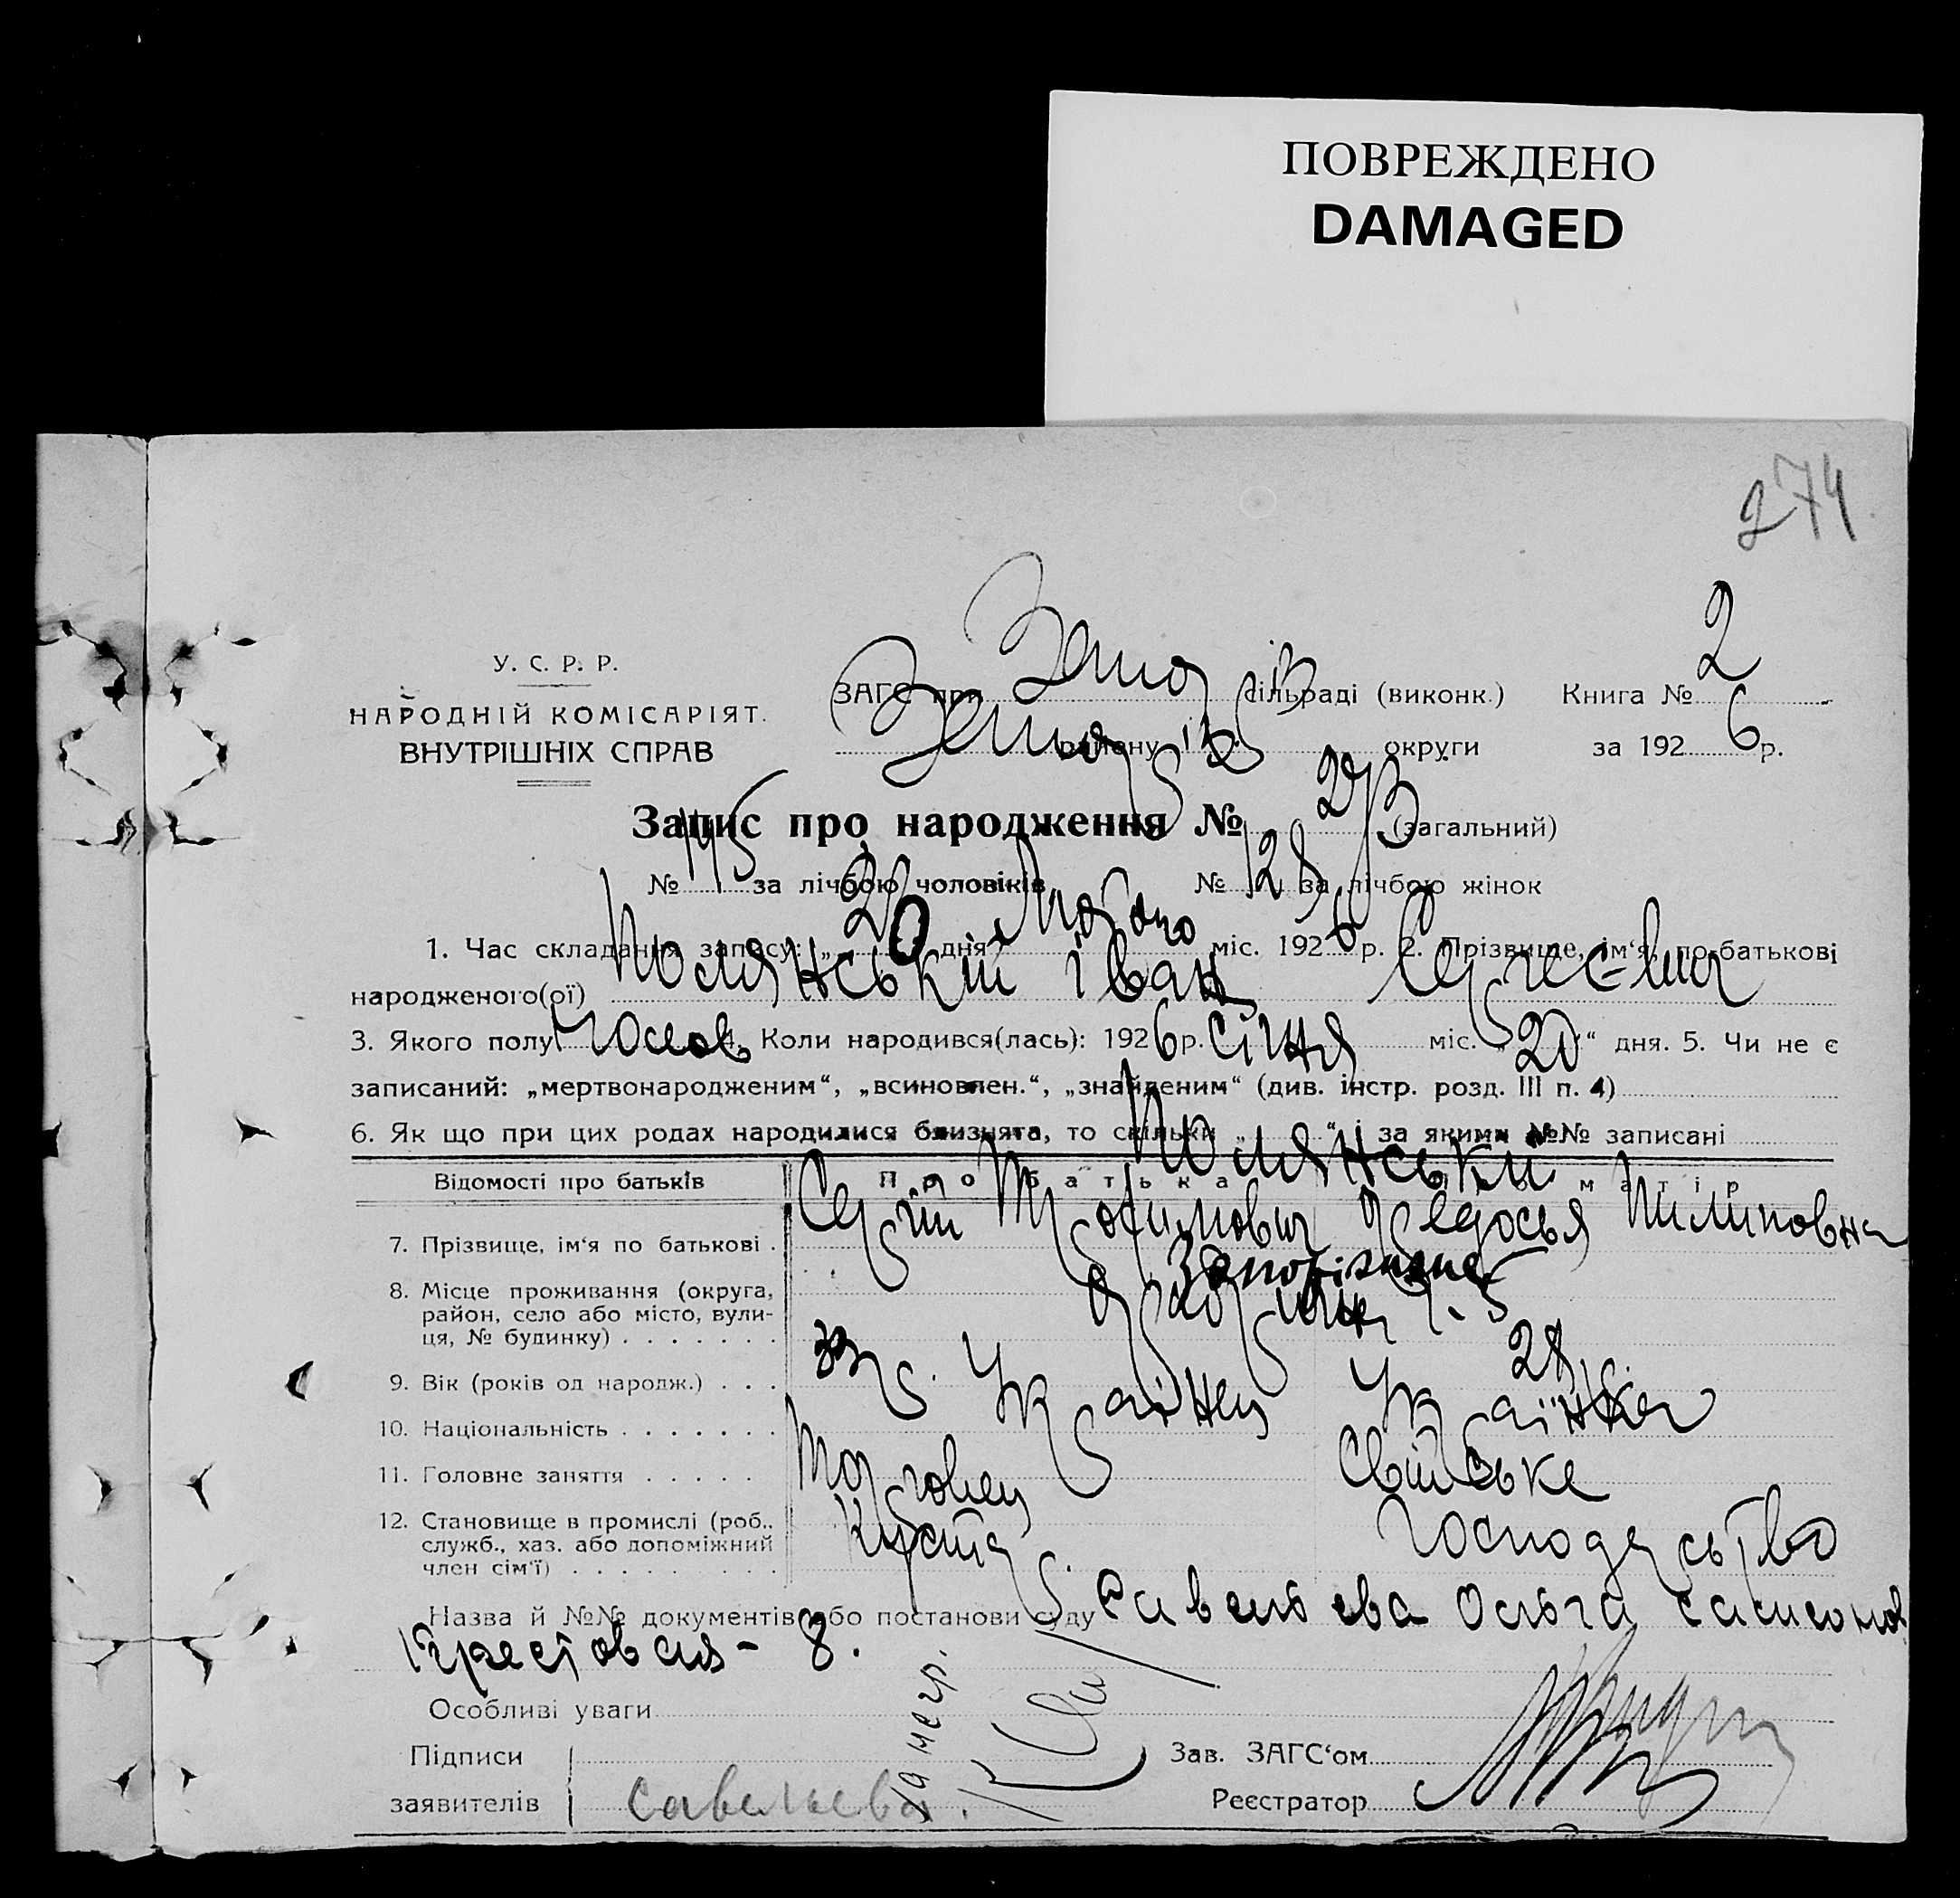 ПОВРЕЖДЕНО
DAMAGED
274
У. С. Р. Р.
НАРОДНІЙ КОМІСАРІЯТ
ВНУТРІШНІХ СПРАВ
ЗАГС при Запоріз сільраді (виконк.) Книга № 2
району округи за 192 6 р.
Запис про народження № 273 (загальний)
№ 145 за лічбою чоловіків № 128 за лічбою жінок
1. Час складання запису: „20 дня Лютого міс. 192 6 р. 2. Прізвище, ім‘я, по-батькові
народженого(ої) Полянський Іван Сергієвич
3. Якого полу Чолов 4. Коли народився(лась): 192 6 р. Січня міс. „20“ дня. 5. Чи не є
записаний: „мертвонародженим“, „всиновлен.“, „знайденим“ (див. інстр. розд. III п. 4)
6. Як що при цих родах народилися близнята, то скільки „ “ і за якими №№ записані
Полянські
Відомості про батьків Про батька матір
7. Прізвище, ім‘я по батькові . Сергій Трофимович Федосья Пилиповна
8. Місце проживання (округа, район, село або місто, вулиця, № будинку) Запоріжжя
9. Вік (років од народж.) . . . 33 р. 28 р.
10. Національність Українец Українка
11. Головне заняття Торговец Свійське
12. Становище в промислі (роб., служб., хаз. або допоміжний член сім‘ї) Кустар Господарство
Назва й №№ документів або постанови суду Савельева Ольга
Крестовая - 8.
Особливі уваги
Підписи
заявителів Савельева.
Зав. ЗАГС‘ом
Реєстратор